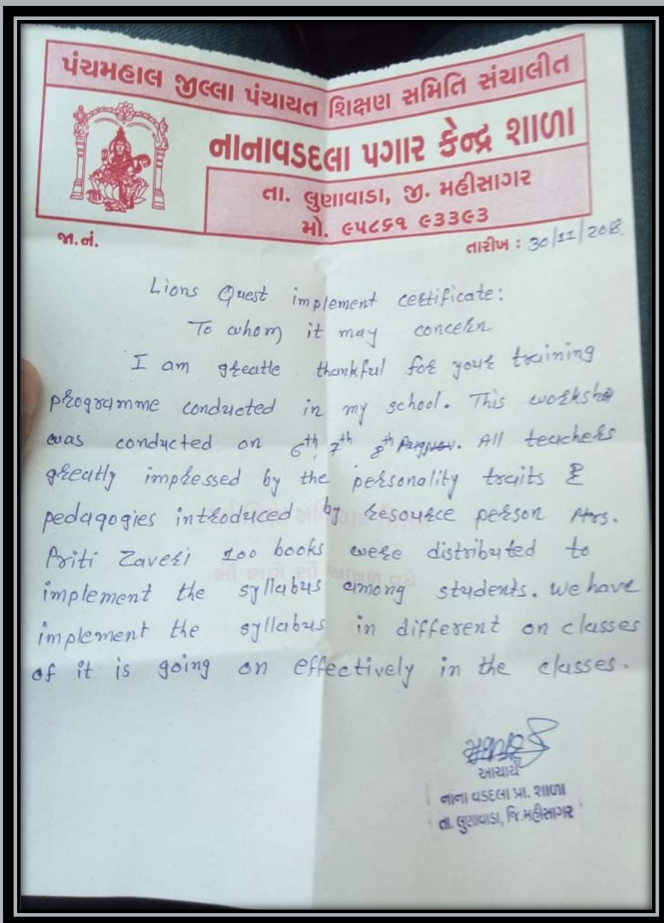 પંચમહાલ જીલ્લા પંચાયત શિક્ષણ સમિતિ સંચાલીત
નાનાવડદલા પગાર કેન્દ્ર શાળા
તા. લુણાવાડા, જી. મહીસાગર
મો. ૯૫૮૬૧ ૯૩૩૯૩
જા.નં.
તારીખ : 30/12/208
Lions Quest implement certificate:
To whom it may concern
I am greatle thankful for your training
programme conducted in my school. This workshop
was conducted on 6th, 7th 8th All teachers
greatly impressed by the personality traits &
pedagogies introduced by resource person Mrs.
Priti Zaveri 200 books were distributed to
implement the syllabus among students. we have
implement the syllabus in different on classes
of it is going on effectively in the classes.
આચાર્ય
નાના વડદલા પ્રા. શાળા
તા. લુણાવાડા, જિ.મહીસાગર